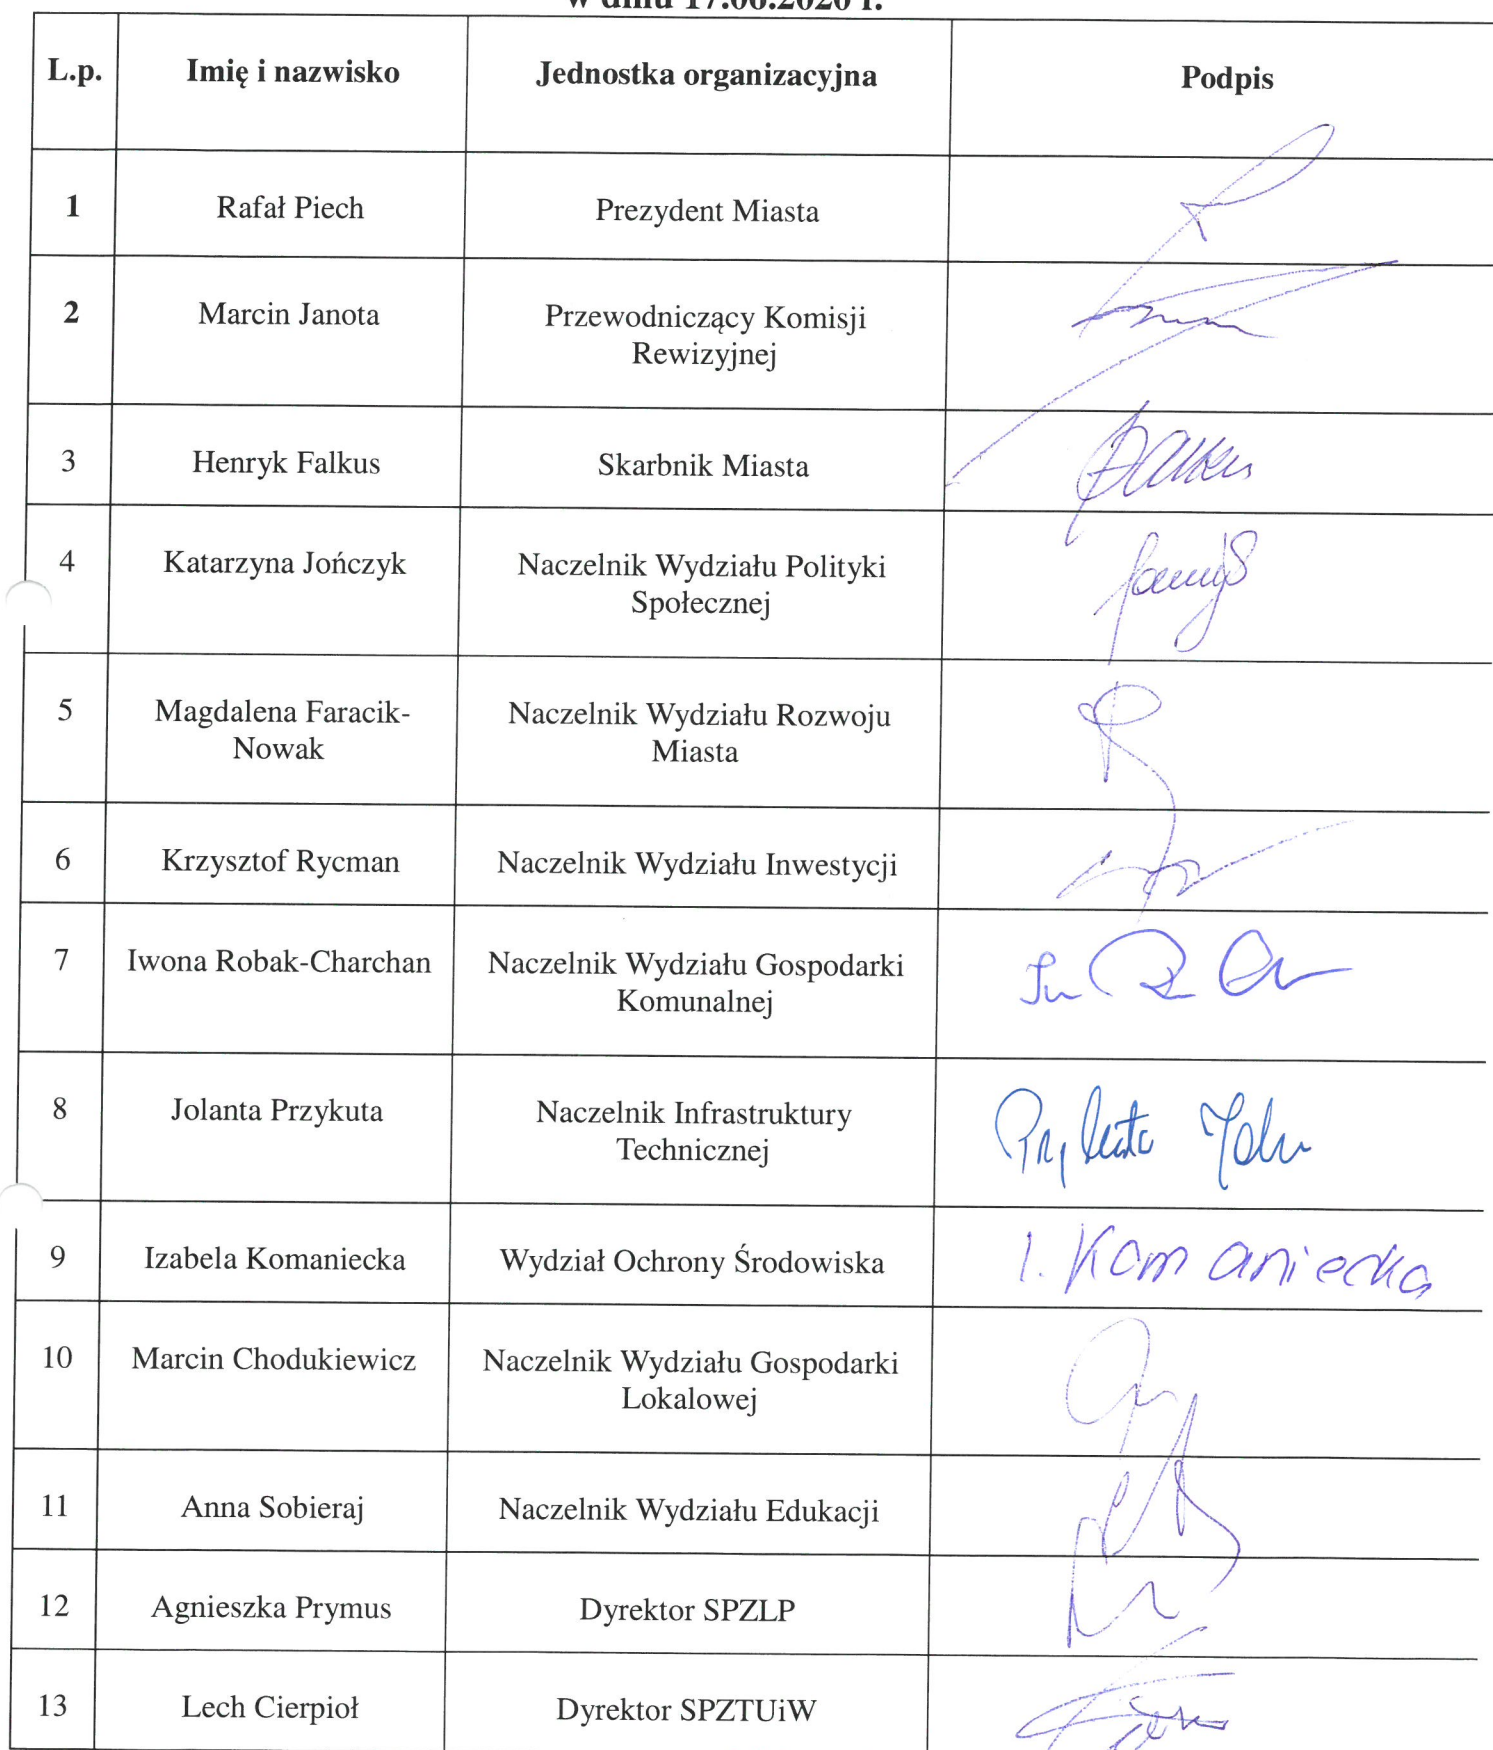 w dniu 17.06.2020 r.
L.p. Imię i nazwisko Jednostka organizacyjna Podpis
1 Rafał Piech Prezydent Miasta
2 Marcin Janota Przewodniczący Komisji
Rewizyjnej
3 Henryk Falkus Skarbnik Miasta
4 Katarzyna Jończyk Naczelnik Wydziału Polityki
Społecznej
5 Magdalena Faracik- Naczelnik Wydziału Rozwoju
Nowak Miasta
6 Krzysztof Rycman Naczelnik Wydziału Inwestycji
7 Iwona Robak-Charchan Naczelnik Wydziału Gospodarki
Komunalnej
8 Jolanta Przykuta Naczelnik Infrastruktury
Technicznej
9 Izabela Komaniecka Wydział Ochrony Środowiska I. Komaniecka
10 Marcin Chodukiewicz Naczelnik Wydziału Gospodarki
Lokalowej
11 Anna Sobieraj Naczelnik Wydziału Edukacji
12 Agnieszka Prymus Dyrektor SPZLP
13 Lech Cierpioł Dyrektor SPZTUiW